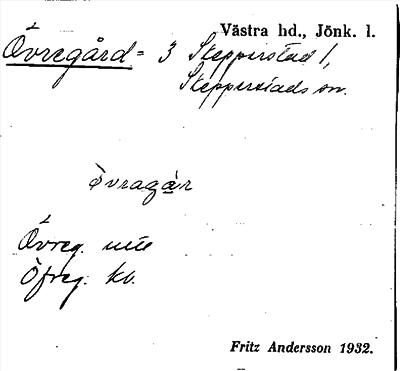 Västra hd., Jönk. l.
Övregård = 3 Stepperstad 1,
Stepperstads sn.
òvragàr
Övreg. utt
Öfreg. kb.
Fritz Andersson 1932.